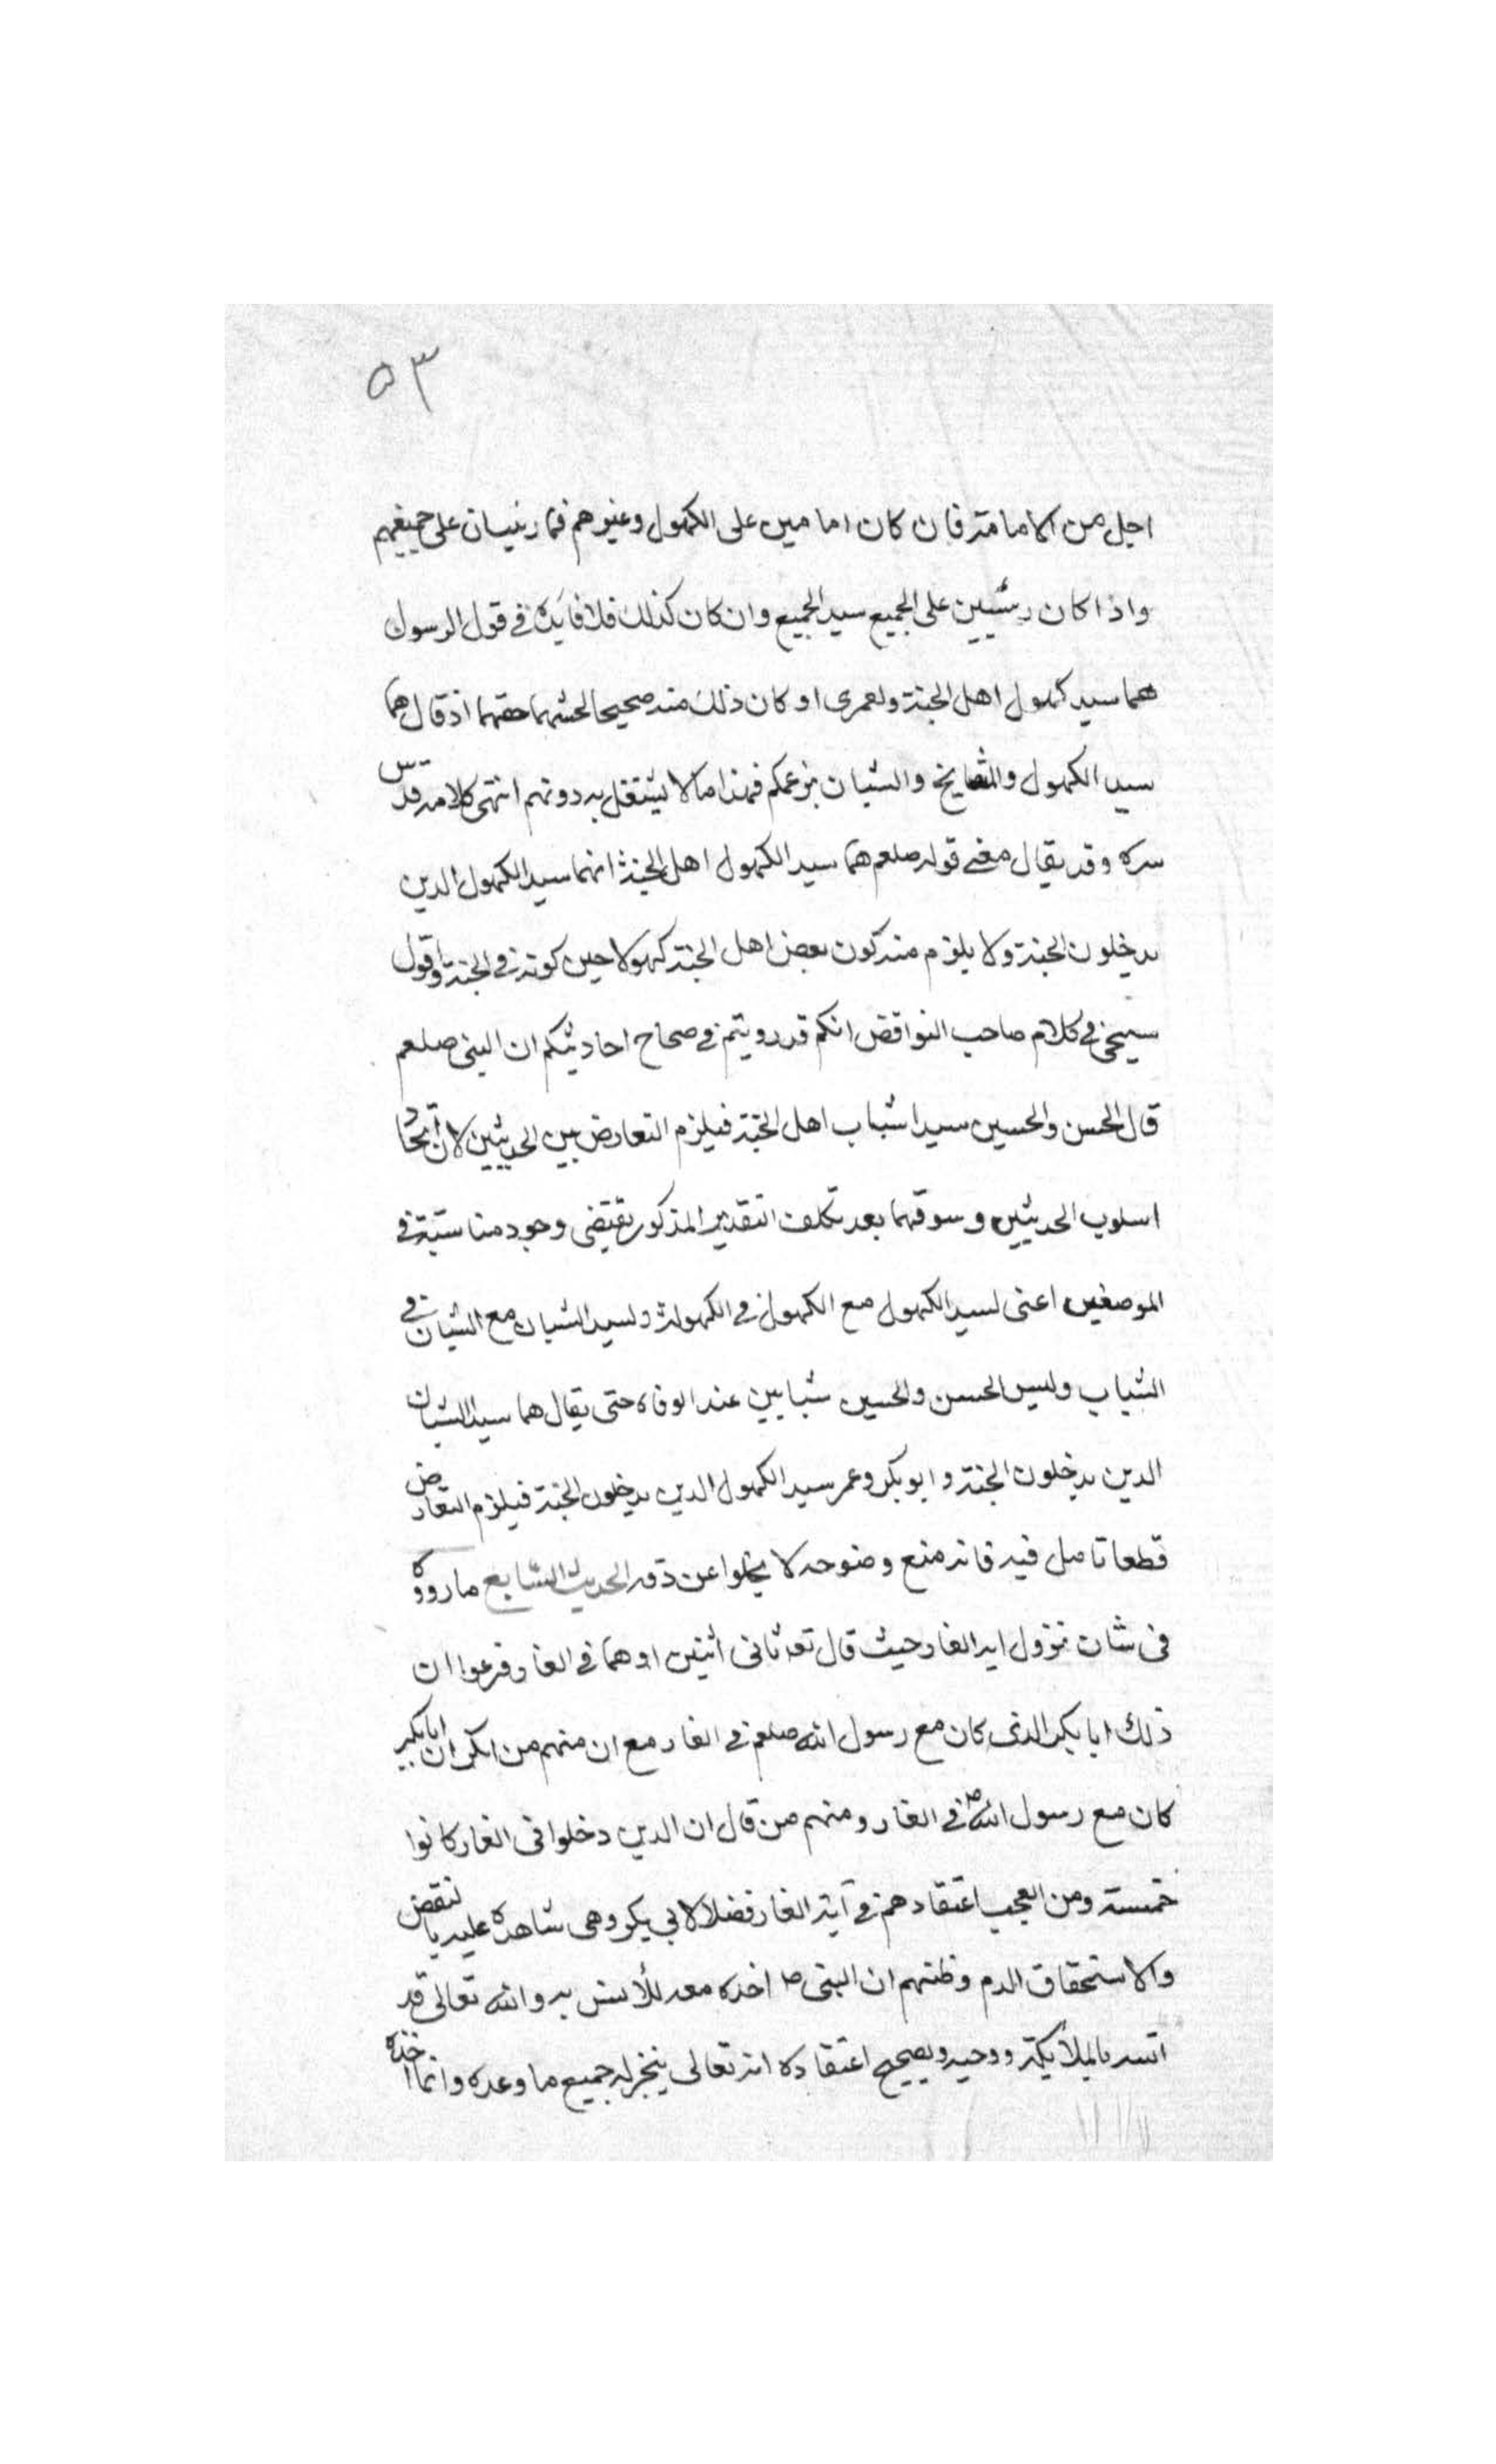 ٥٣
اجل من الامامة فان كان امامين على الكهول وغيرهم فهما رئيسان على جميعهم
واذا كان رئيسين على الجميع سيدا الجميع وان كان كذلك فلا فايدة في قول الرسول
هما سيد كهول اهل الجنة ولعمرى او كان ذلك منه صحيحا لحشمهما حقهما اذ قال هما
سيدا الكهول والمشايخ والشبان بزعمكم فهذا ما لا يشتغل به دونهم انتهى كلامه قدس
سره وقد يقال معنى قوله صلعم هما سيدا الكهول اهل الجنة انهما سيدا الكهول الدين
يدخلون الجنة ولا يلزم منه كون بعض اهل الجنة كهولا حين كونه في الجنة واقول
سيجئ في كلام صاحب النواقض انكم قد رويتم في صحاح احاديثكم ان النبى صلعم
قال الحسن والحسين سيدا شباب اهل الجنة فيلزم التعارض بين الحديثين لان اتحاد
اسلوب الحديثين وسوقهما بعد تكلف التقدير المذكور يقتضى وجود مناسبة في
الموصفين اعنى لسيد الكهول مع الكهول في الكهولة ولسيد الشبان مع الشبان في
الشباب وليس الحسن والحسين شبابين عند الوفاه حتى يقال هما سيدا الشبان
الدين يدخلون الجنة وابوبكر وعمر سيدا الكهول الدين يدخلون الجنة فيلزم التعارض
قطعا تامل فيه فانه منع وضوحه لا يخلوا عن دقه الحديث السابع ما رووه
فى شان نزول ايه الغار حيث قال تعه ثانى اثنين اوهما في الغار فزعموا ان
ذلك ابا بكر الذى كان مع رسول الله صلعم في الغار مع ان منهم من انكر ان ابا بكر
كان مع رسول الله ص في الغار ومنهم من قال ان الدين دخلوا فى الغار كانوا
خمسة ومن العجب اعتقادهم في آية الغار فضلا لابي بكر وهى شاهدة عليه بالنقض
والاستحقاق الدم وظنهم ان النبى ص اخذه معه للأنس به والله تعالى قد
انسه بالملائكة ووحيه ويصحيح اعتقاده انه تعالى ينجز له جميع ما وعده وانما اخذه